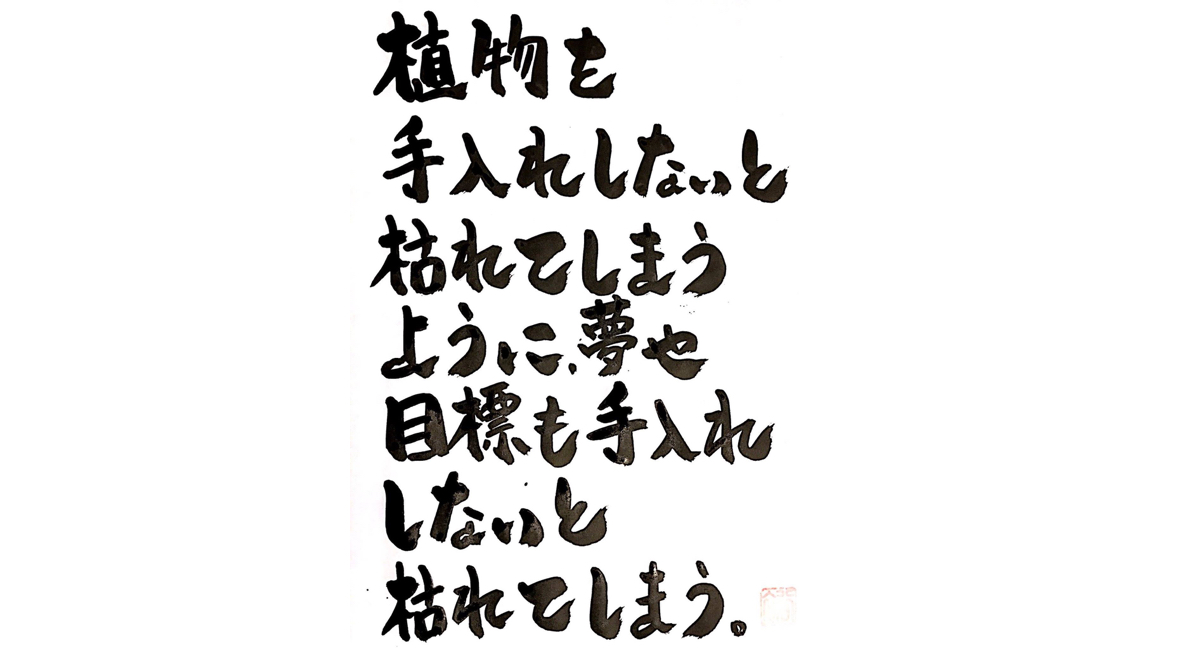 植物を
手入れしないと
枯れてしまう
ように、夢や
目標も手入れ
しないと
枯れてしまう。